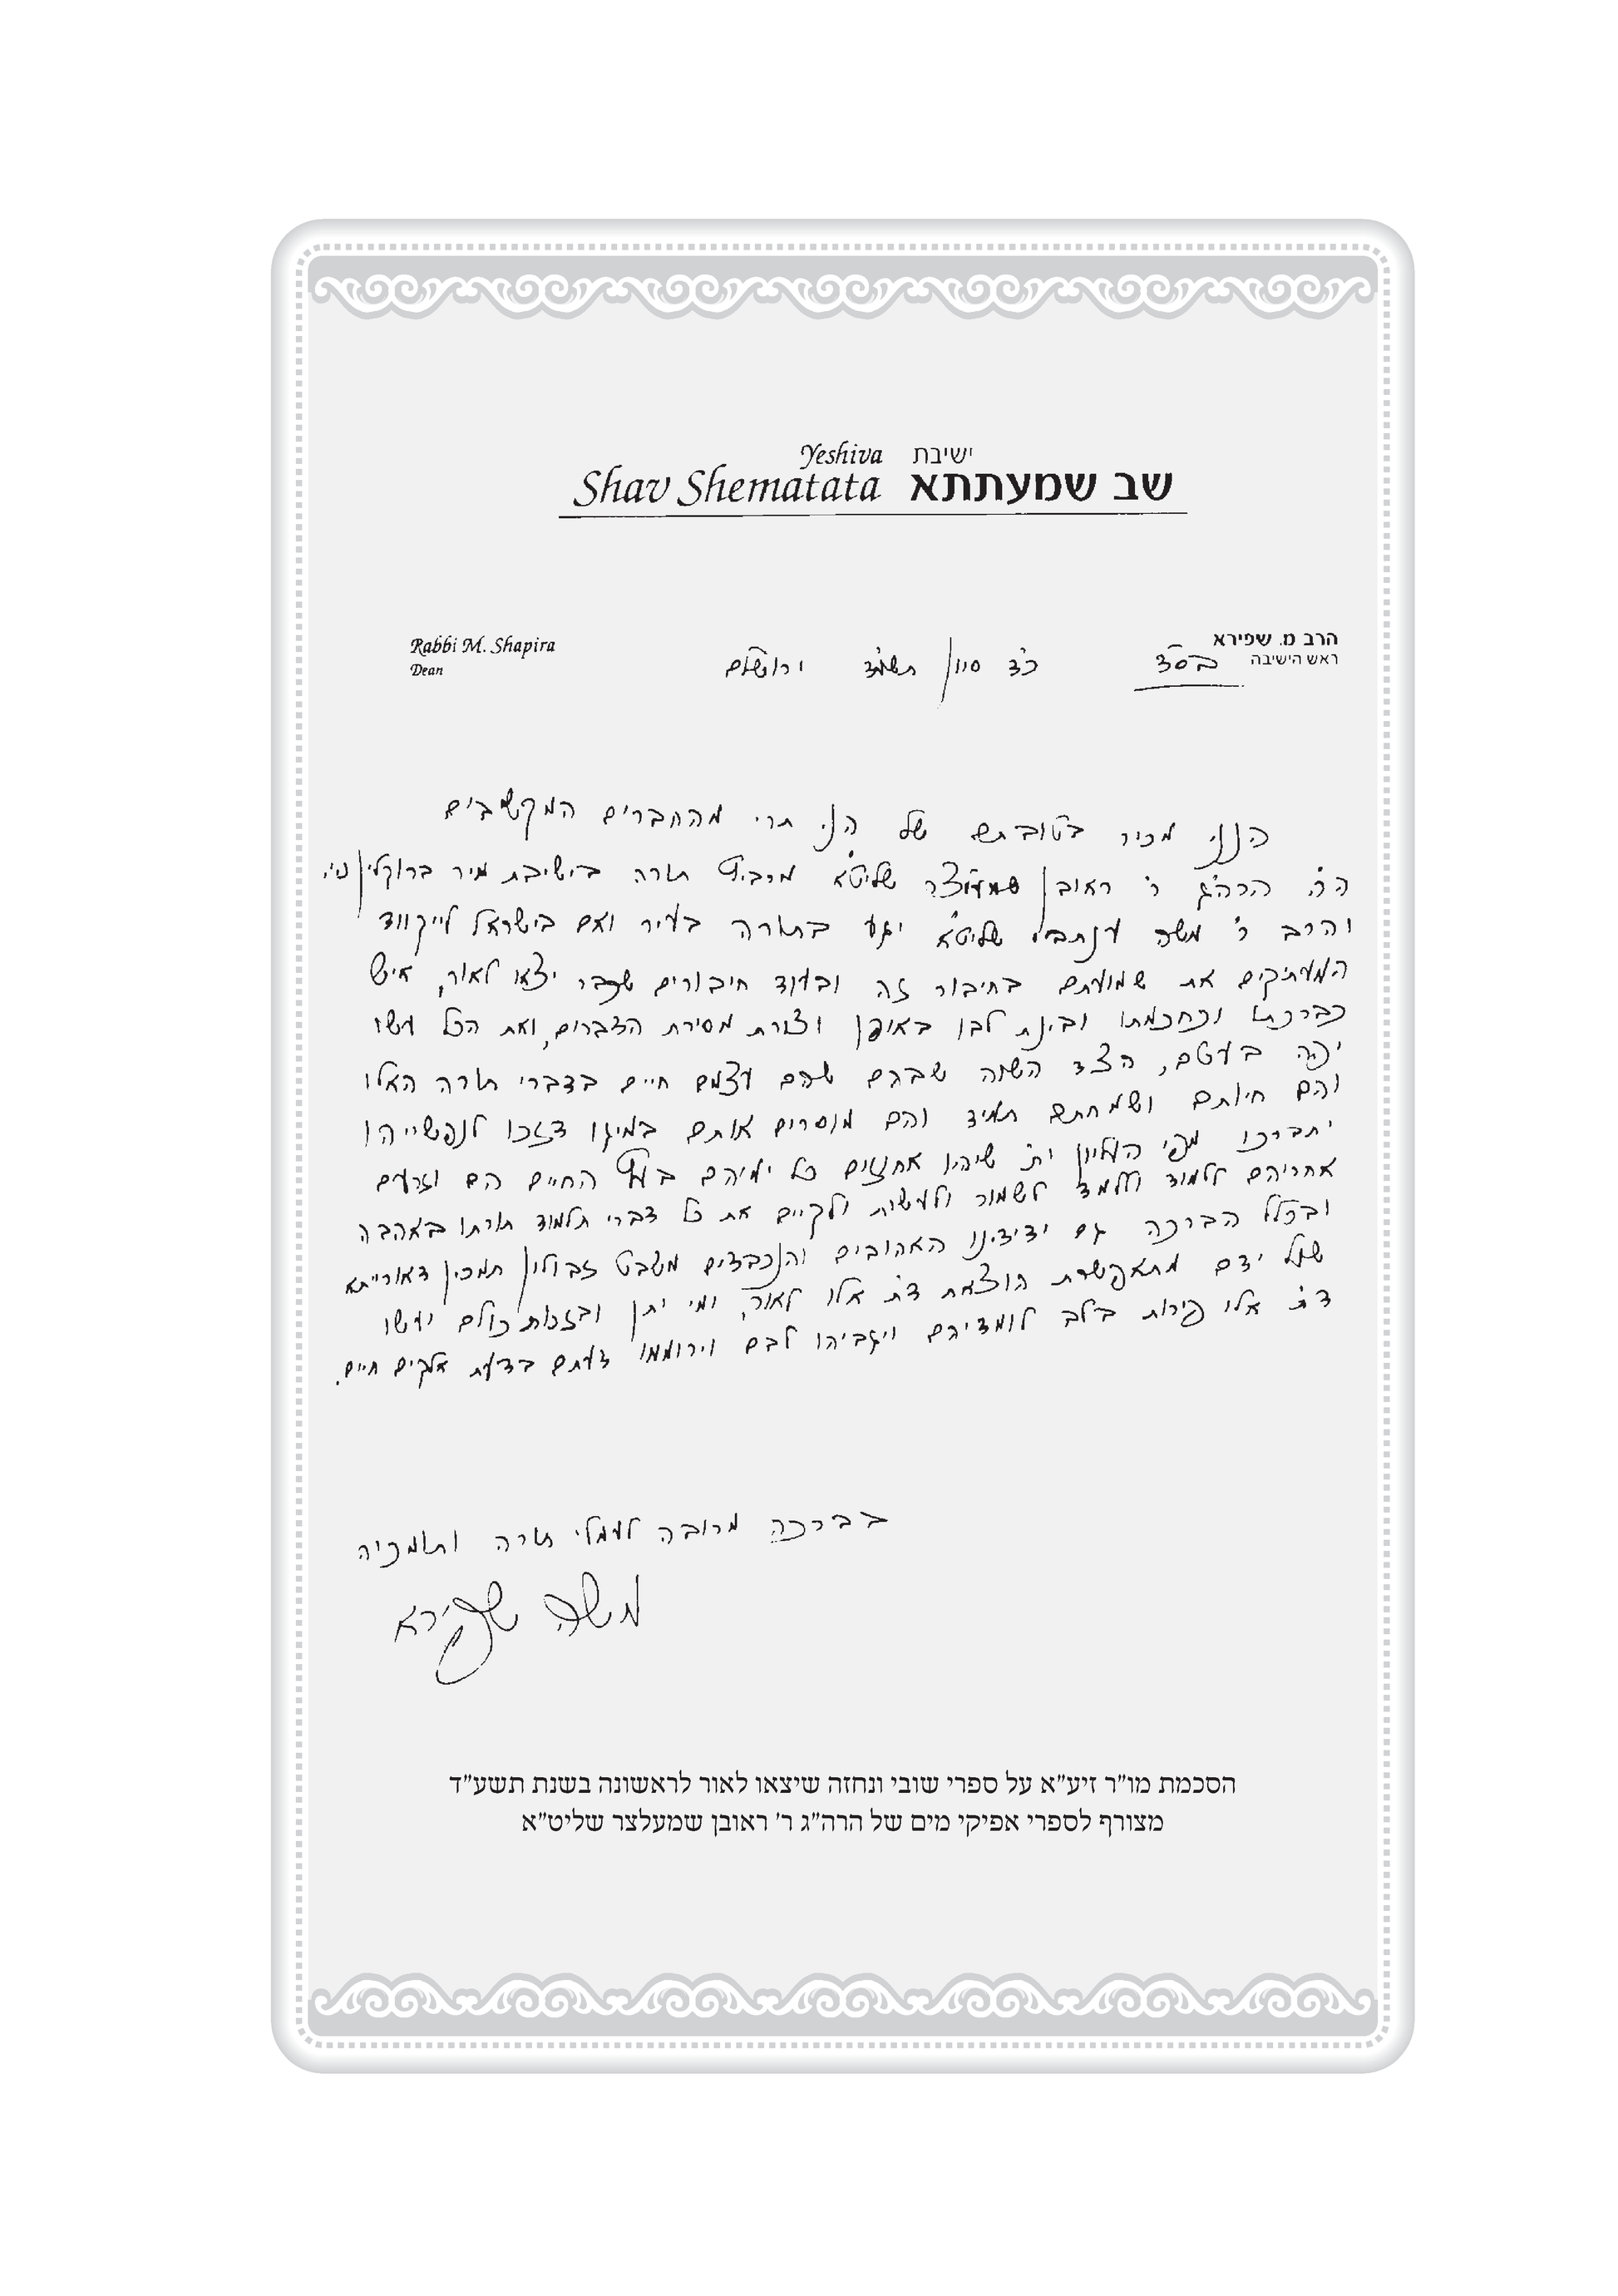 Yeshiva ישיבת
Shav Shematata שב שמעתתא
הרב מ. שפירא
ראש הישיבה
Rabbi M. Shapira
Dean
בס"ד
כ"ד סיון תשע"ד ירושלים
הנני מכיר בטובתם של הני תרי מהחברים המקשיבים
ה"ה הרה"ג ר' ראובן שמעלצר שליט"א מרביץ תורה בישיבת מיר ברוקלין נ.י.
והרב ר' משה ענתבי שליט"א יגע בתורה בעיר ואם בישראל לייקווד
המעתיקים את שמועתם בחיבור זה ובעוד חיבורים שכבר יצאו לאור, איש
כברכתו וכחכמתו ובינת לבו באופן וצורת מסירת הדברים, ואת הכל עשו
יפה בעטם, הצד השוה שבהם שהם עצמם חיים בדברי תורה האלו
והם חיותם ושמחתם תמיד והם מוסרים אותם במיגו דזכו לנפשייהו
יתברכו מפי העליון ית' שיהיו אחוזים כל ימיהם בעץ החיים הם וזרעם
אחריהם ללמוד וללמד לשמור ולעשות ולקיים את כל דברי תלמוד תורתו באהבה
ובכלל הברכה גם ידידינו האהובים והנכבדים משבט זבולון תמכין דאורייתא
שעל ידם מתאפשרת הוצאת ד"ת אלו לאור, ומי יתן ובזכות כולם יעשו
ד"ת אלו פירות בלב לומדיהם ויגביהו לבם וירוממו דעתם בדעת אלקים חיים.
בברכה מרובה לעמלי תורה ותומכיה
משה שפירא
הסכמת מו"ר זיע"א על ספרי שובי ונחזה שיצאו לאור לראשונה בשנת תשע"ד
מצורף לספרי אפיקי מים של הרה"ג ר' ראובן שמעלצר שליט"א